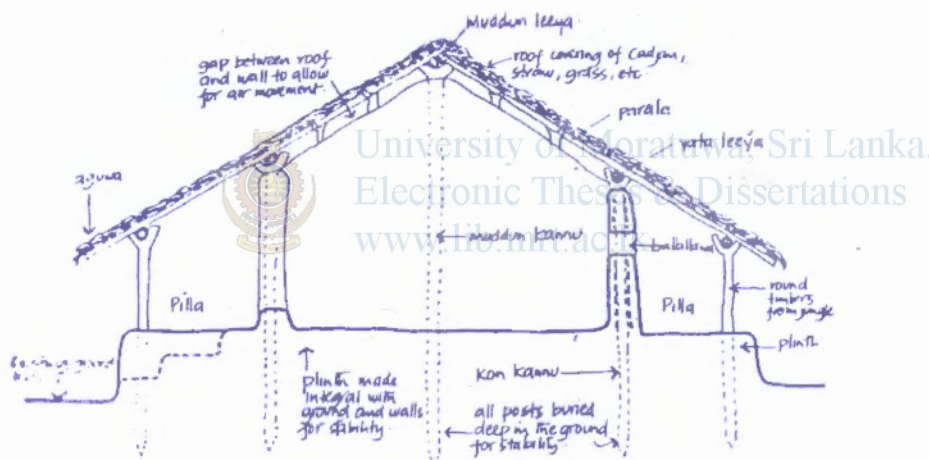 Muddun leeya
gap between roof
and wall to allow
for air movement
roof covering of Cadjan,
straw, grass, etc
parala
yata leeya
University of Moratuwa, Sri Lanka.
Electronic Theses & Dissertations
www.lib.mrt.ac.lk
muddun kannu
Pilla
Pilla
round
timbers
from jungle
plinth
plinth made
integral with
ground and walls
for stability
kon kannu
all posts buried
deep in the ground
for stability